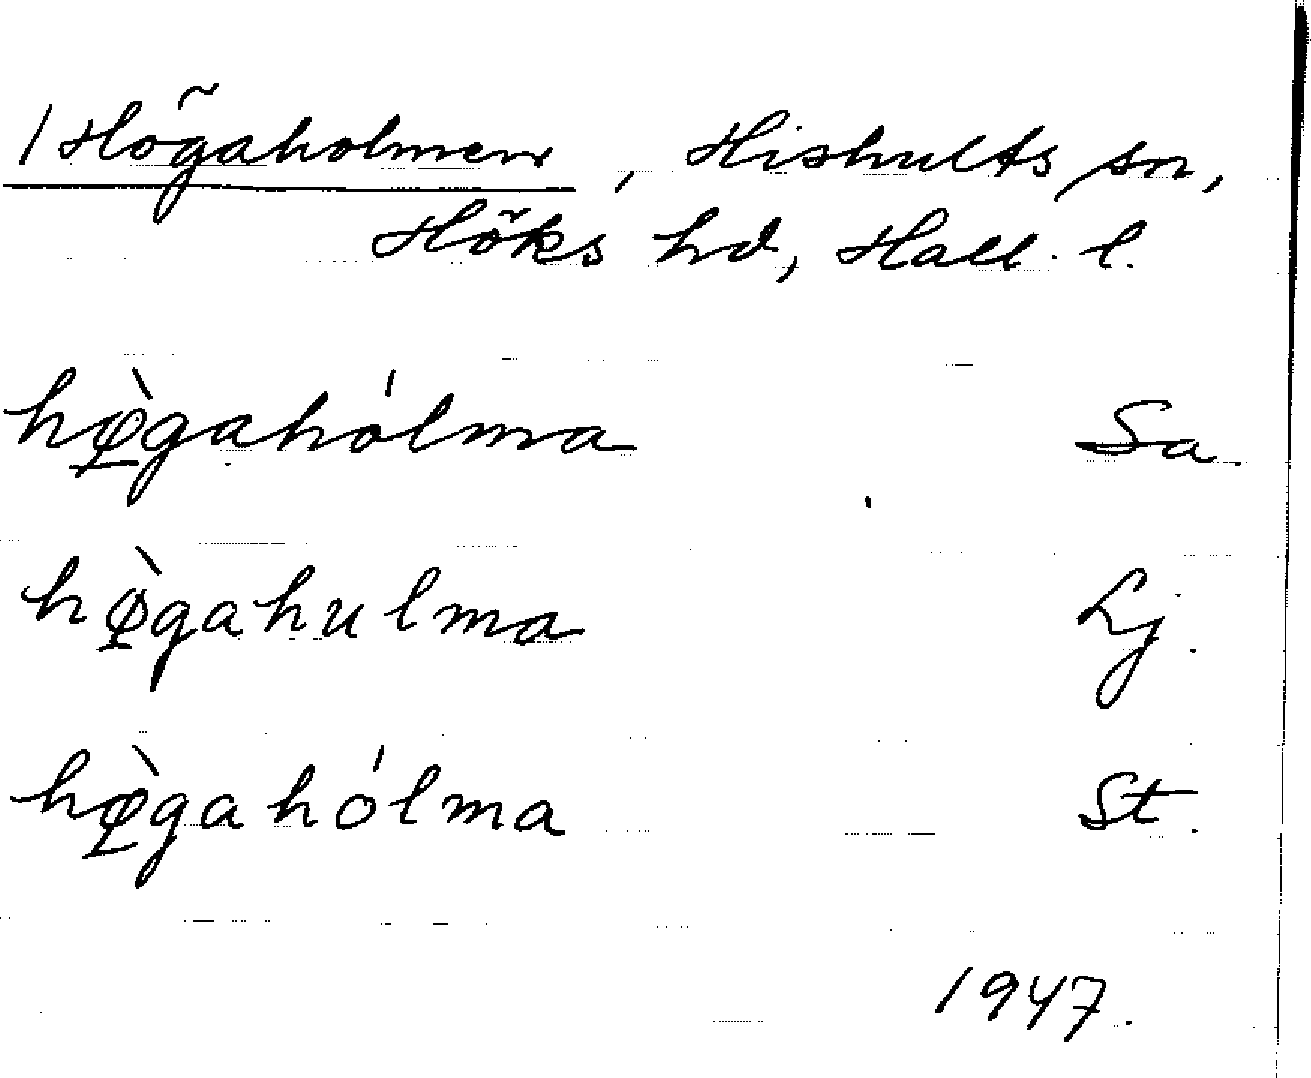 / Högaholmen, Hishults sn,
Höks hd, Hall. l.
hø̀gahólma Sa
hø̀gahulma Lj.
hø̀gahólma St.
1947.